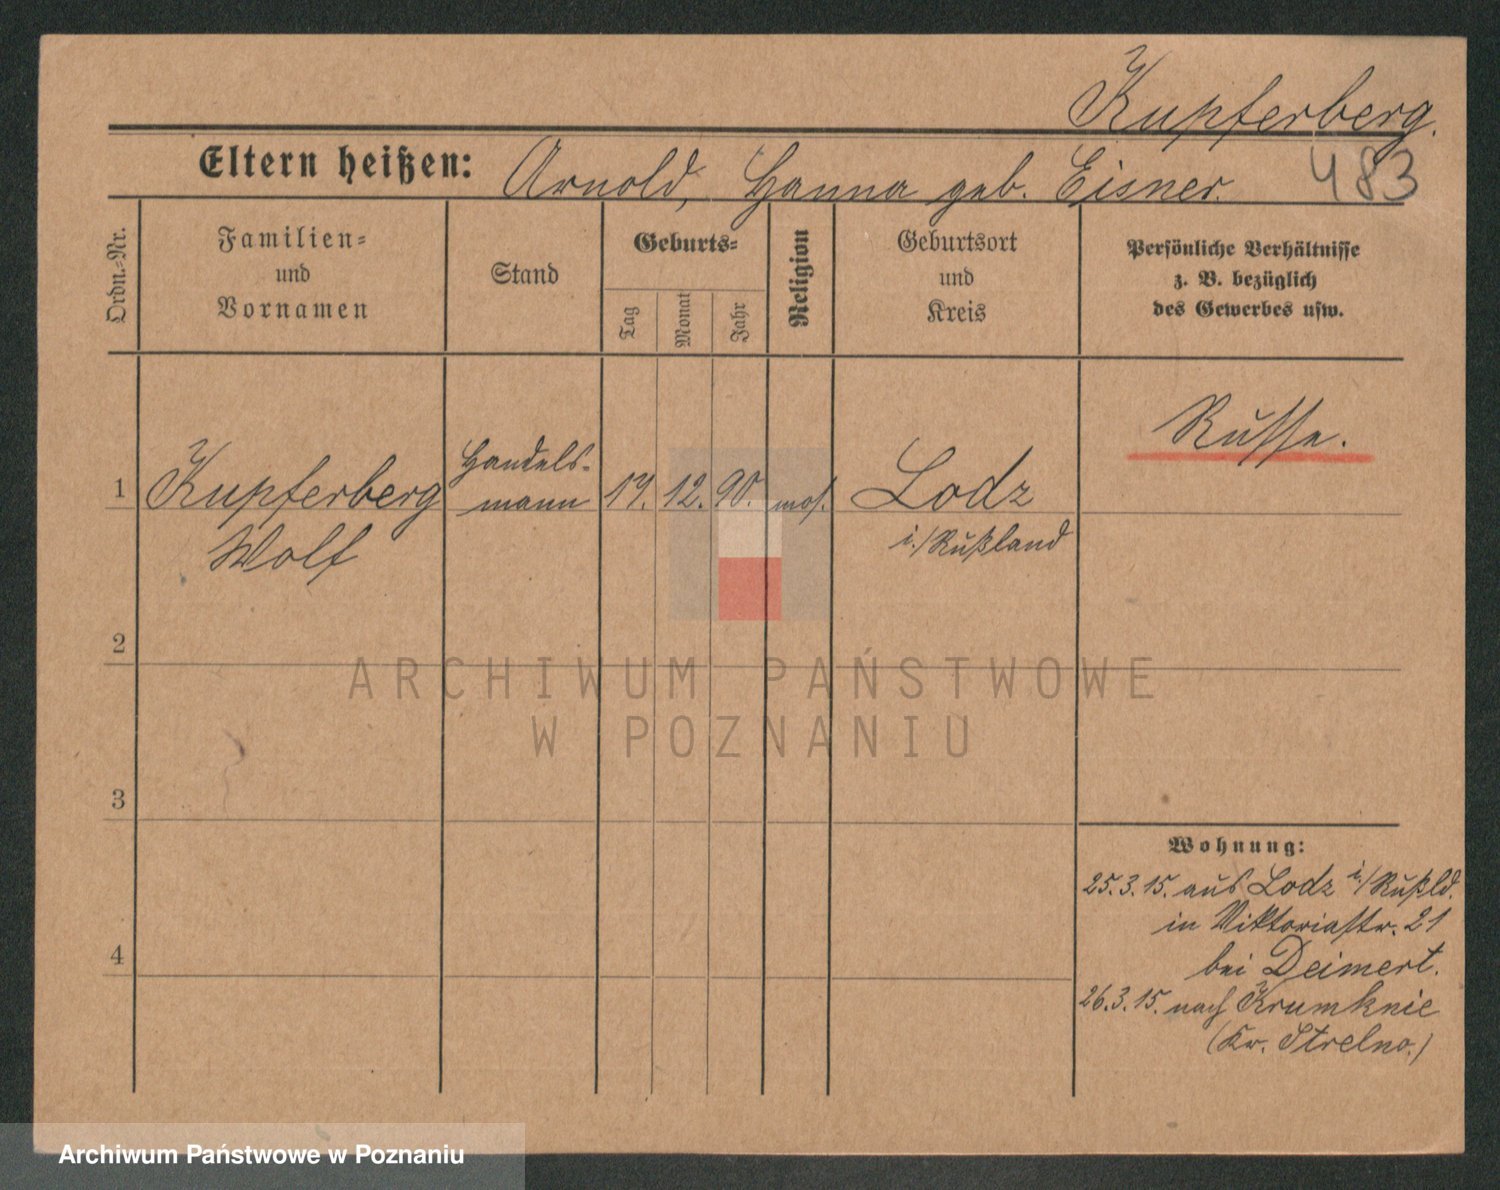 Kupferberg.
483
Eltern heißen: Arnold, Hanna geb. Eisner.
Ordn.-Nr.
Familien-
und
Vornamen
Stand
Geburts-
Tag
Monat
Jahr
Religion
Geburtsort
und
Kreis
Persönliche Verhältnisse
z. B. bezüglich
des Gewerbes usw.
Russe.
1 Kupferberg
Wolf
Handels-
mann
17. 12. 90. mos.
Lodz
i./Rußland
2
ARCHIWUM PAŃSTWOWE
W POZNANIU
3
4
Wohnung:
25.3.15. aus Lodz i./Rußld.
in Viktoriastr. 21
bei Deimert.
26.3.15. nach Krumknie
(Kr. Strelno.)
Archiwum Państwowe w Poznaniu